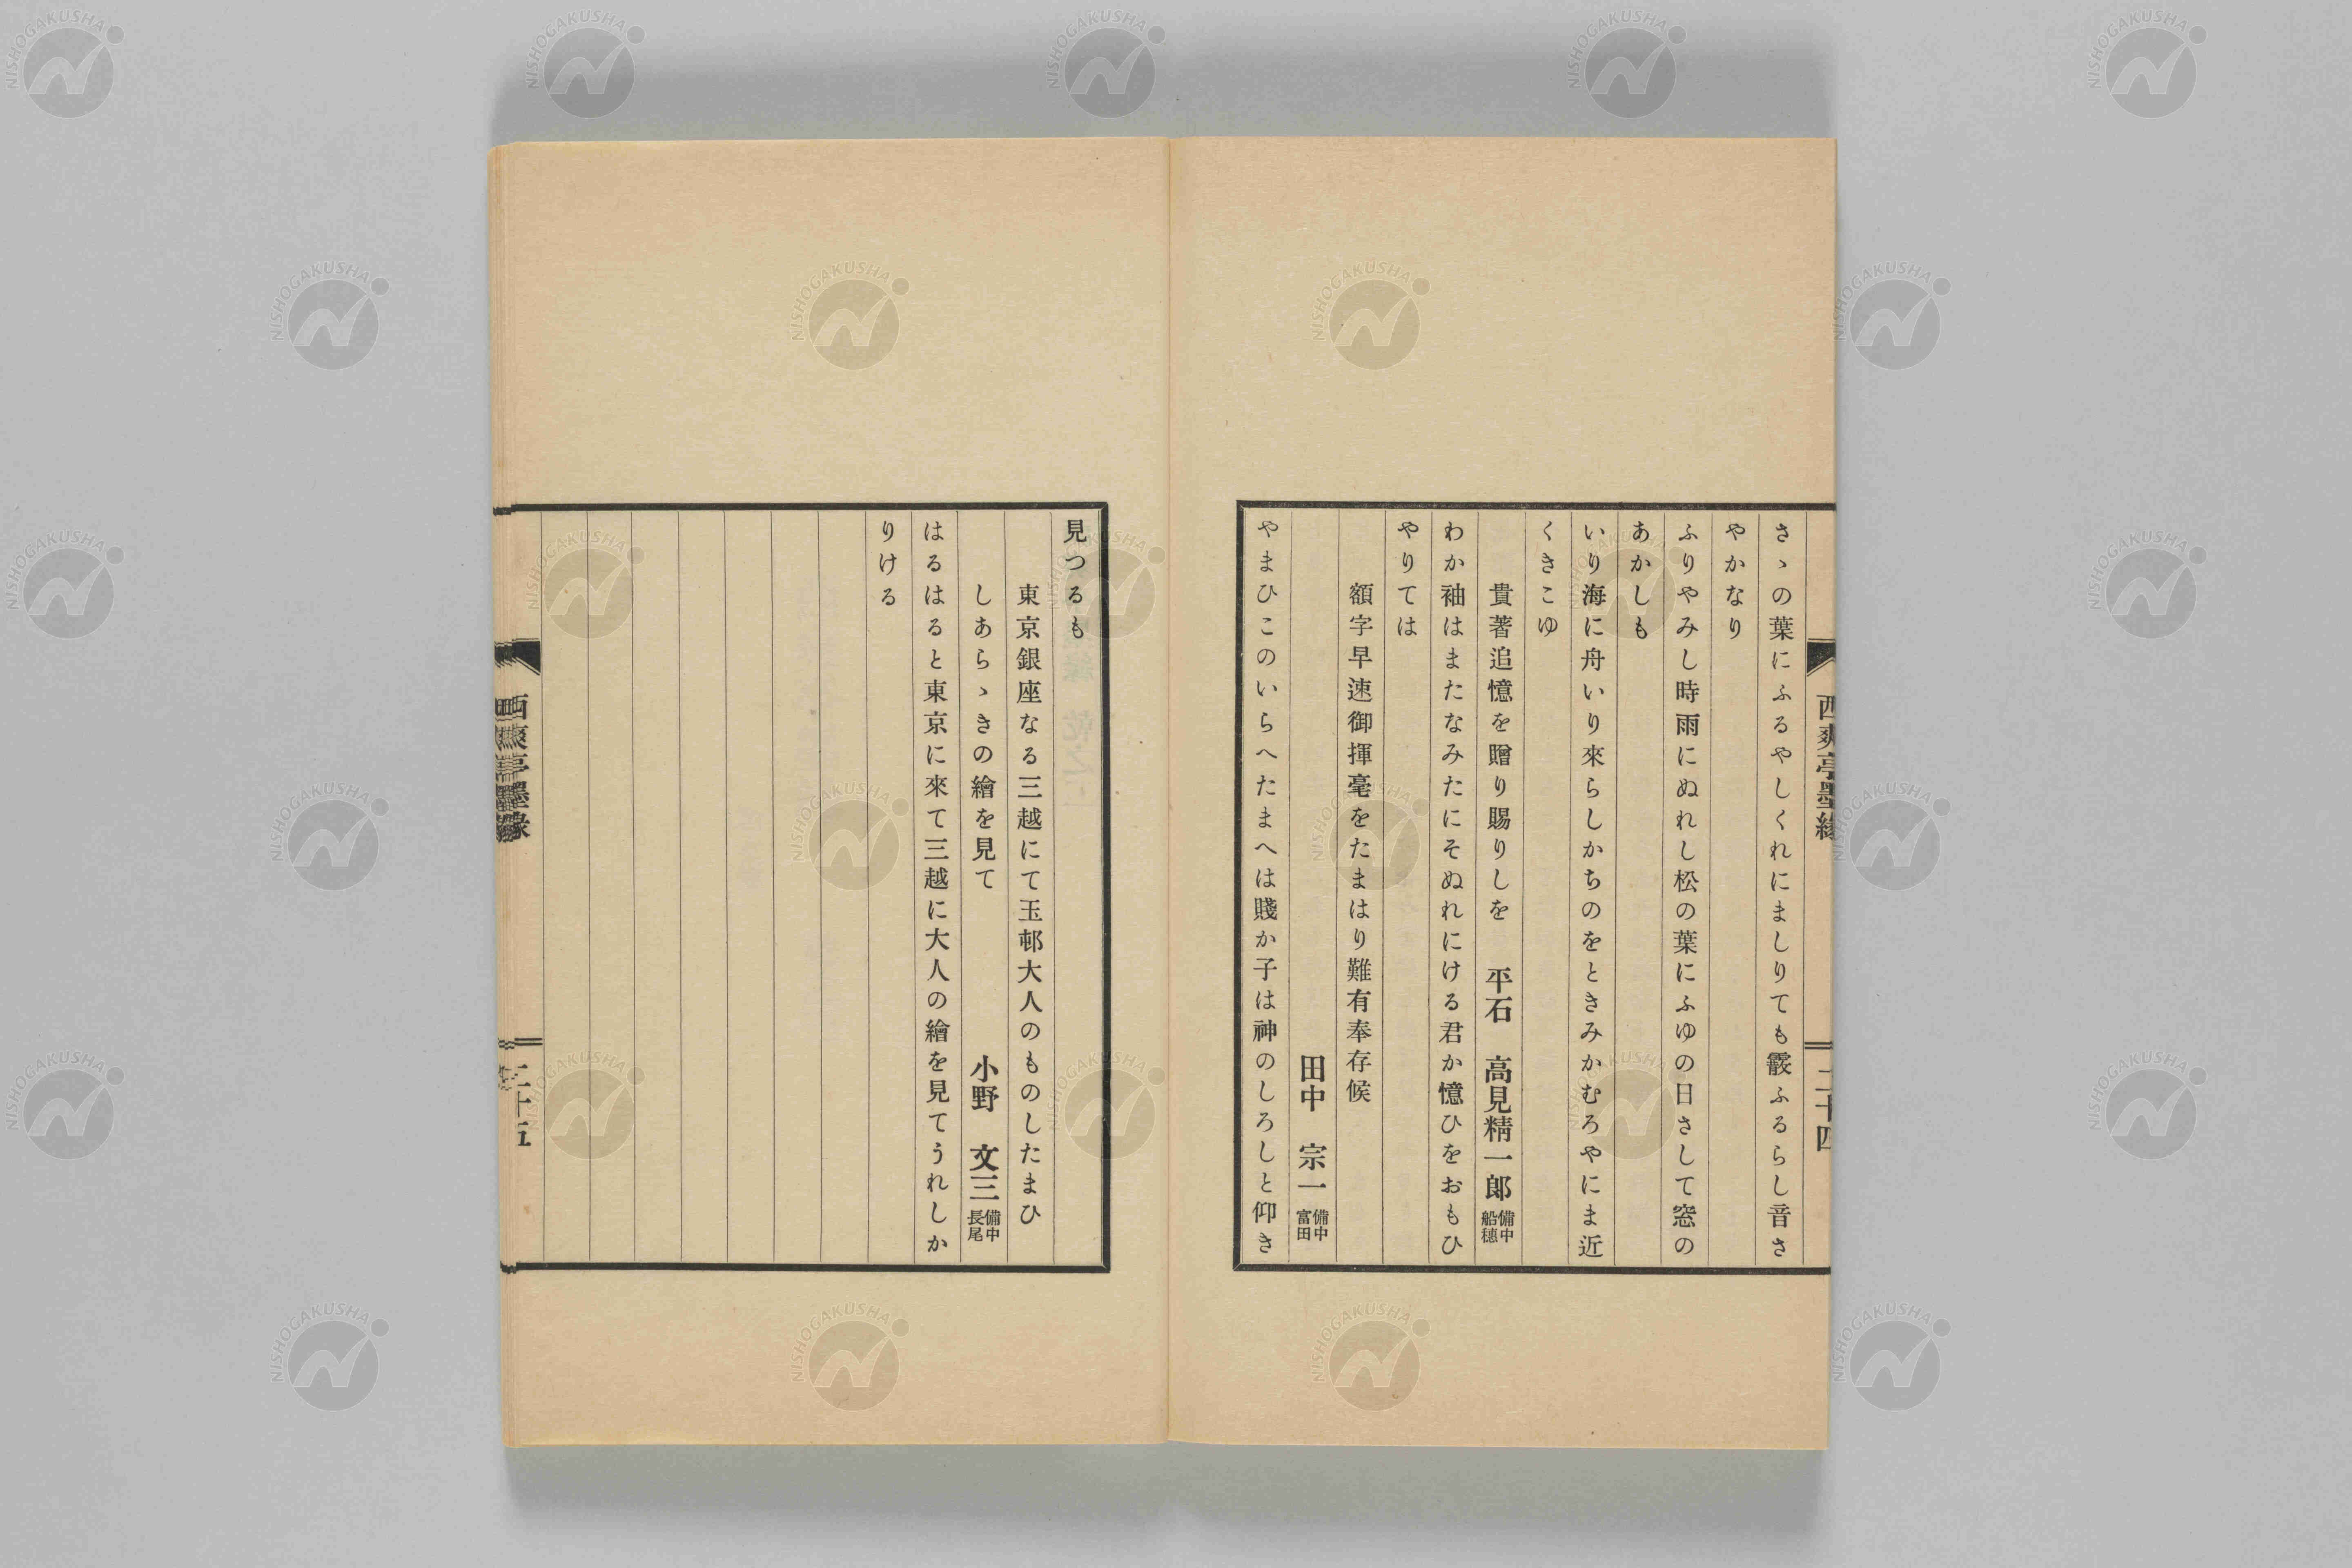 西爽亭墨緣
二十四
さゝの葉にふるやしくれにましりても霰ふるらし音さ
やかなり
ふりやみし時雨にぬれし松の葉にふゆの日さして窓の
あかしも
いり海に舟いり來らしかちのをときみかむろやにま近
くきこゆ
貴著追憶を贈り賜りしを　平石　高見精一郎 備中船穗
わか袖はまたなみたにそぬれにける君か憶ひをおもひ
やりては
額字早速御揮毫をたまはり難有奉存候
田中　宗一 備中富田
やまひこのいらへたまへは賤か子は神のしろしと仰き
見つるも
東京銀座なる三越にて玉邨大人のものしたまひ
しあらゝきの繪を見て　小野　文三 備中長尾
はるはると東京に來て三越に大人の繪を見てうれしか
りける
西爽亭墨緣
二十五
NISHOGAKUSHA